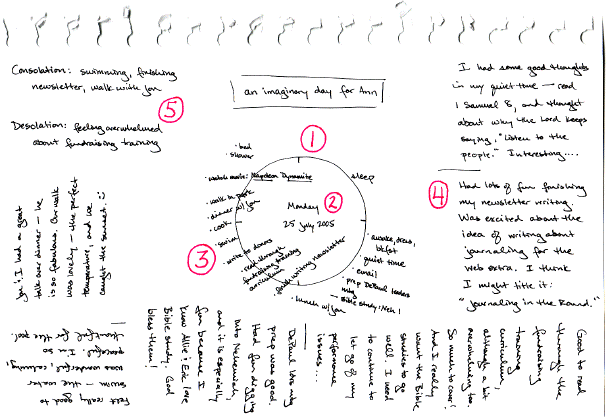 Consolation: swimming, finishing
newsletter, walk with you
5
Desolation: feeling overwhelmed
about fundraising training
an imaginary day for Ann
1
I had some good thoughts
in my quiet time — read
1 Samuel 8, and thought
about why the Lord keeps
saying, "Listen to the
people." Interesting....
4
Had lots of fun finishing
my newsletter writing.
Was excited about the
idea of writing about
journaling for the
web extra. I think
I might title it:
"Journaling in the Round."
• bed
shower
• watch movie: Napoleon Dynamite
• walk in park
• dinner w/ you
• cook
• swim
3
• write to donors
• read through
fundraising training
curriculum
• finish writing newsletter
• lunch w/ you
sleep
Monday
2
25 July 2005
• awake, dress,
bkfst
• quiet time
• email
• prep DePaul leaders
mtg
— Bible study: Neh 1
I had a great
talk over dinner — he
is so fabulous. Our walk
was lovely — the perfect
temperature, and we
caught the sunset. :)
Felt really good to
swim — the water
was wonderful, calming,
peaceful. I'm so
thankful for the pool.
DePaul ldrs mtg
prep was good.
Had fun digging
into Nehemiah,
and it is especially
fun because I
know Allie & Eric love
Bible study. God
bless them!
Good to read
through the
fundraising
training
curriculum,
although a bit
overwhelming too.
So much to cover!
And I really
want the Bible
studies to go
well. I need
to continue to
let go of my
performance
issues...